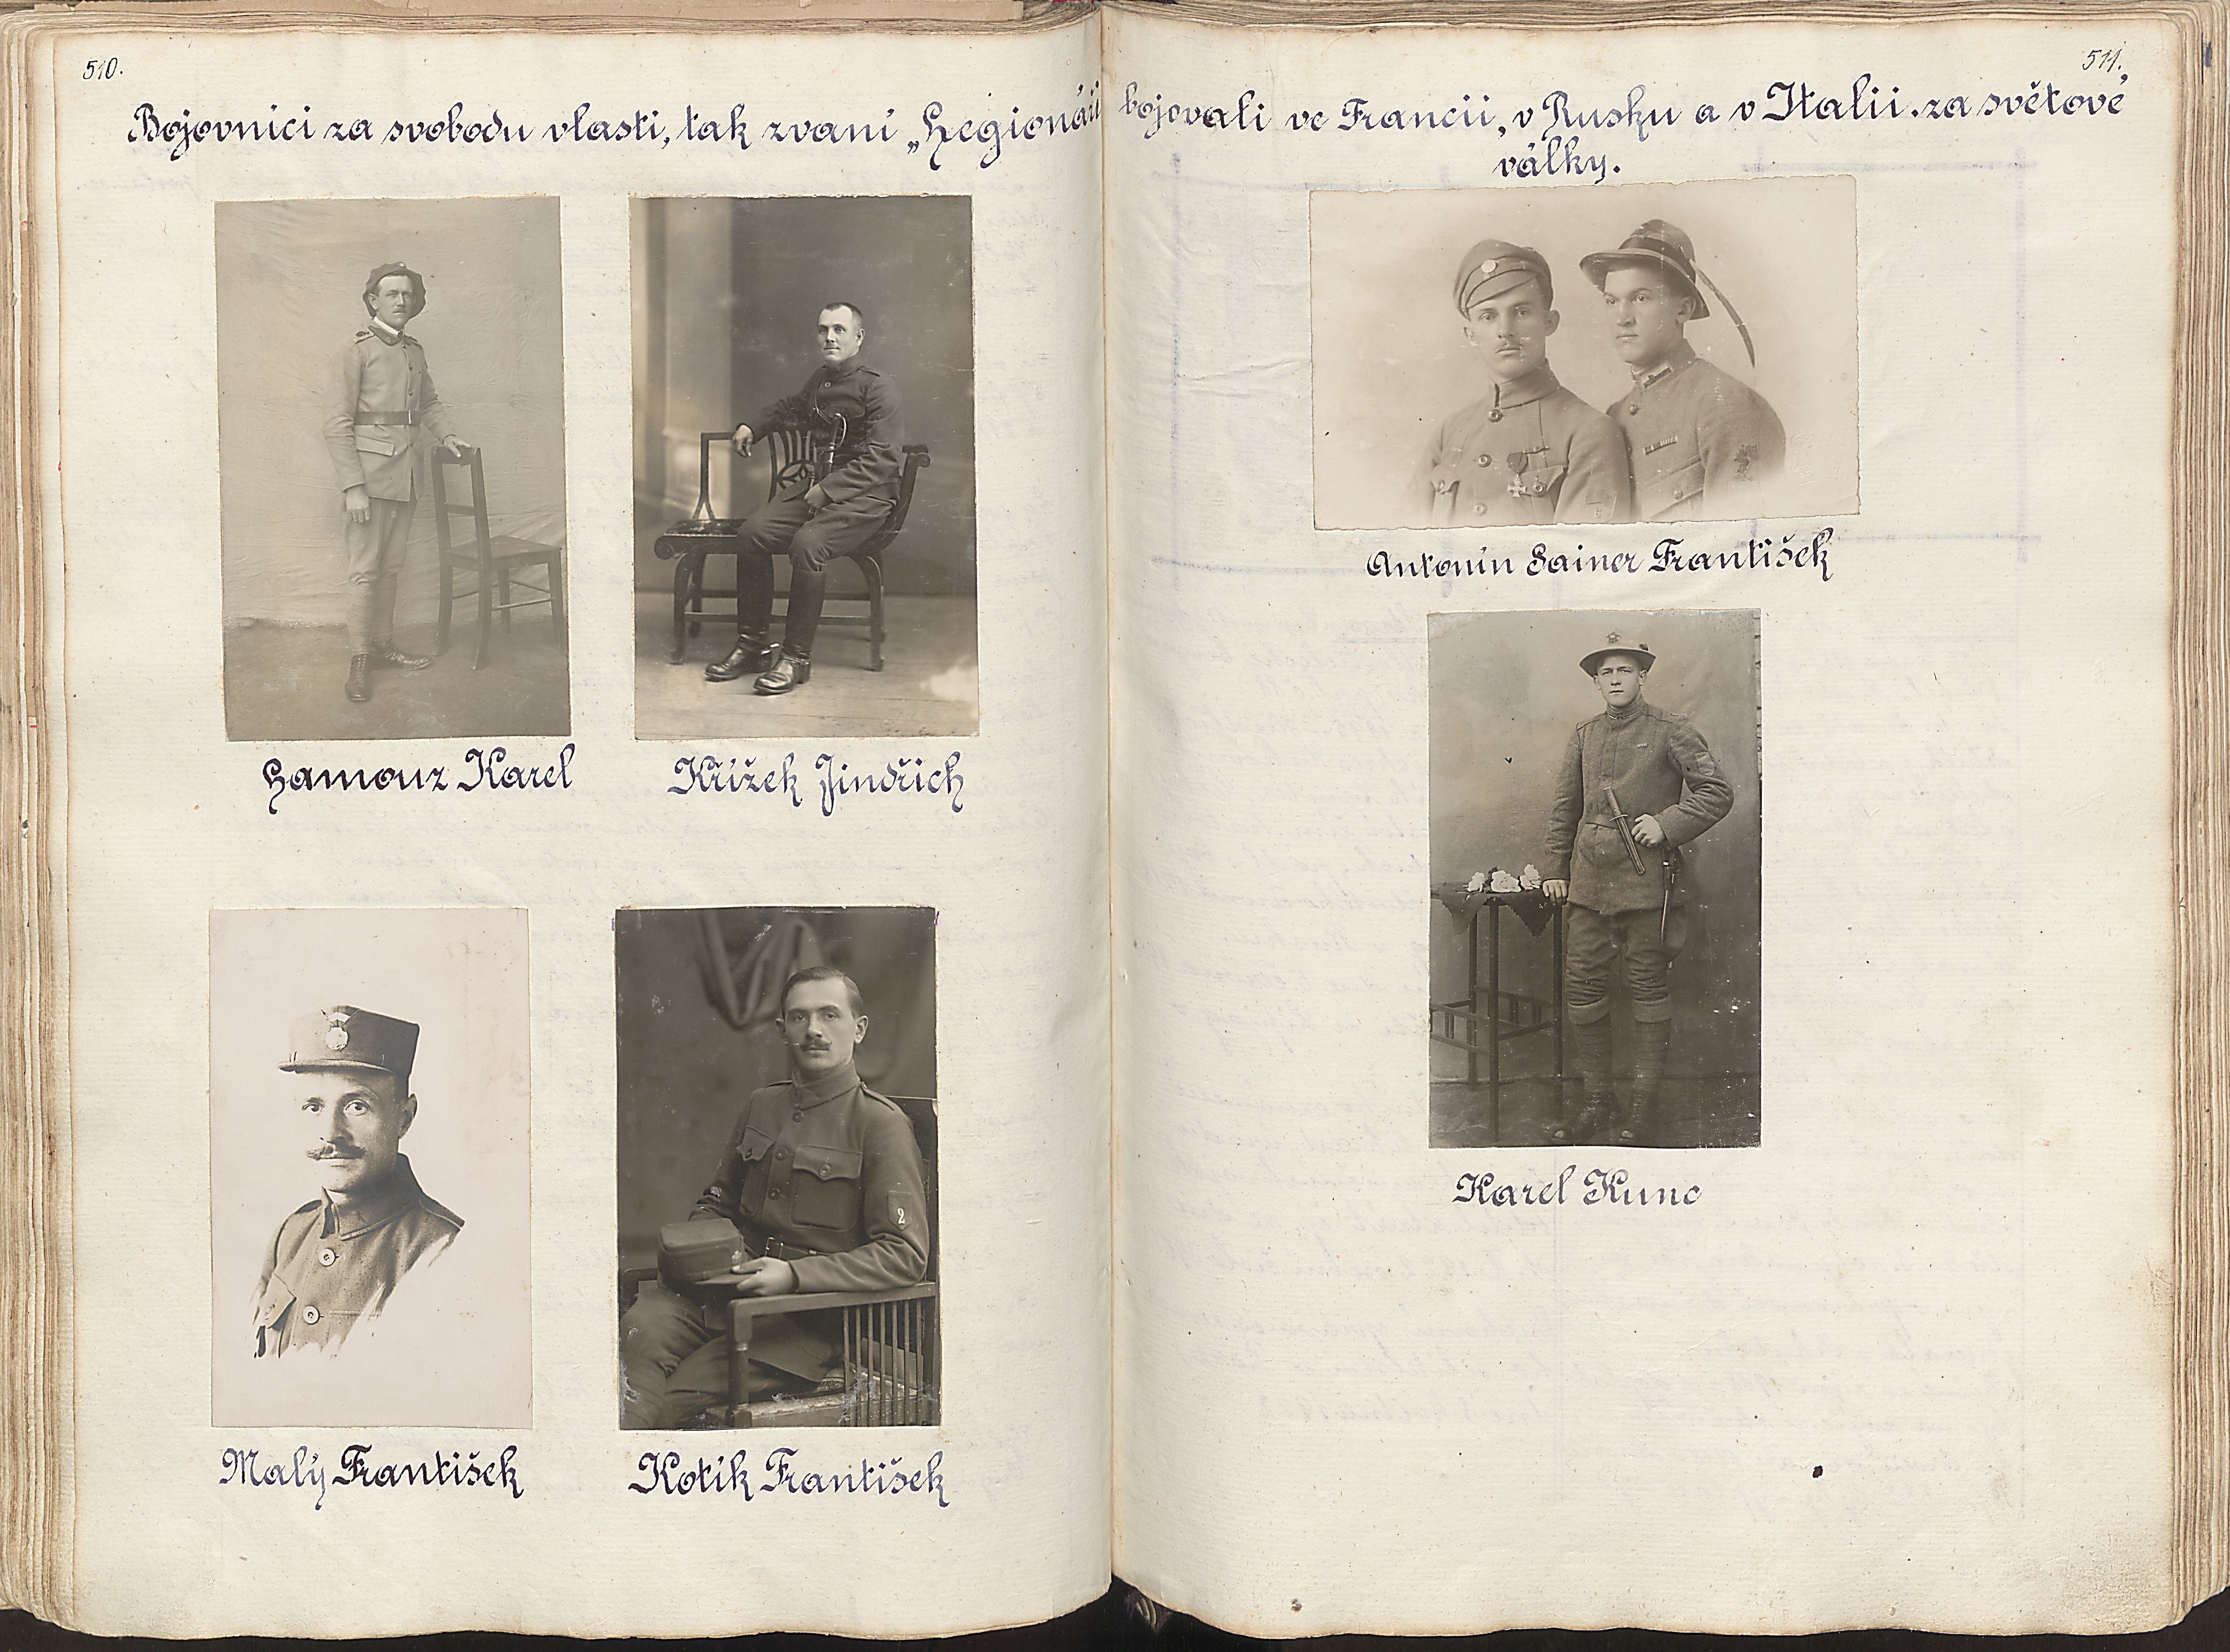 510.
Bojovníci za svobodu vlasti, tak zvaní „Legionáři
Hamouz Karel
Křížek Jindřich
Malý František
Kotík František
511.
bojovali ve Francii, v Rusku a v Italii. za světové
války.
Antonín Sainer František
Karel Kunc
2